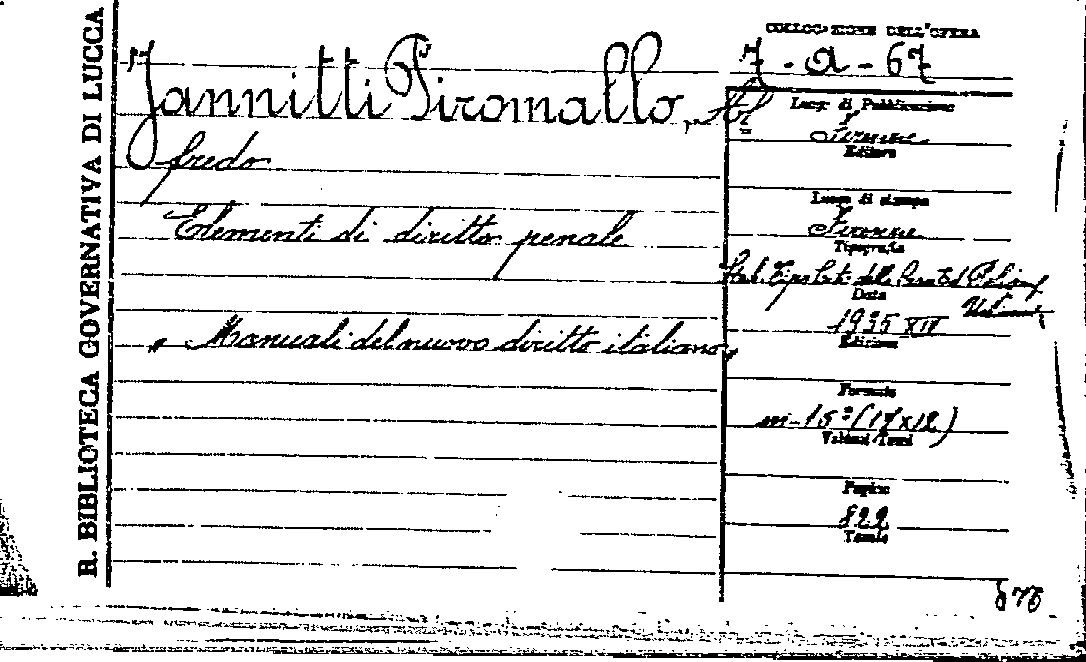 R. BIBLIOTECA GOVERNATIVA DI LUCCA
COLLOCAZIONE DELL'OPERA
7 - a - 67
Jannitti Piromallo, Al=
fredo
Elementi di diritto penale
" Manuali del nuovo diritto italiano "
Luogo di Pubblicazione
Firenze
Editore
Luogo di stampa
Firenze
Tipografia
Stab. Tipo
Data
1935 XIV
Edizione
Formato
in-15° (17x12)
Volumi/Tomi
Pagine
822
Tavole